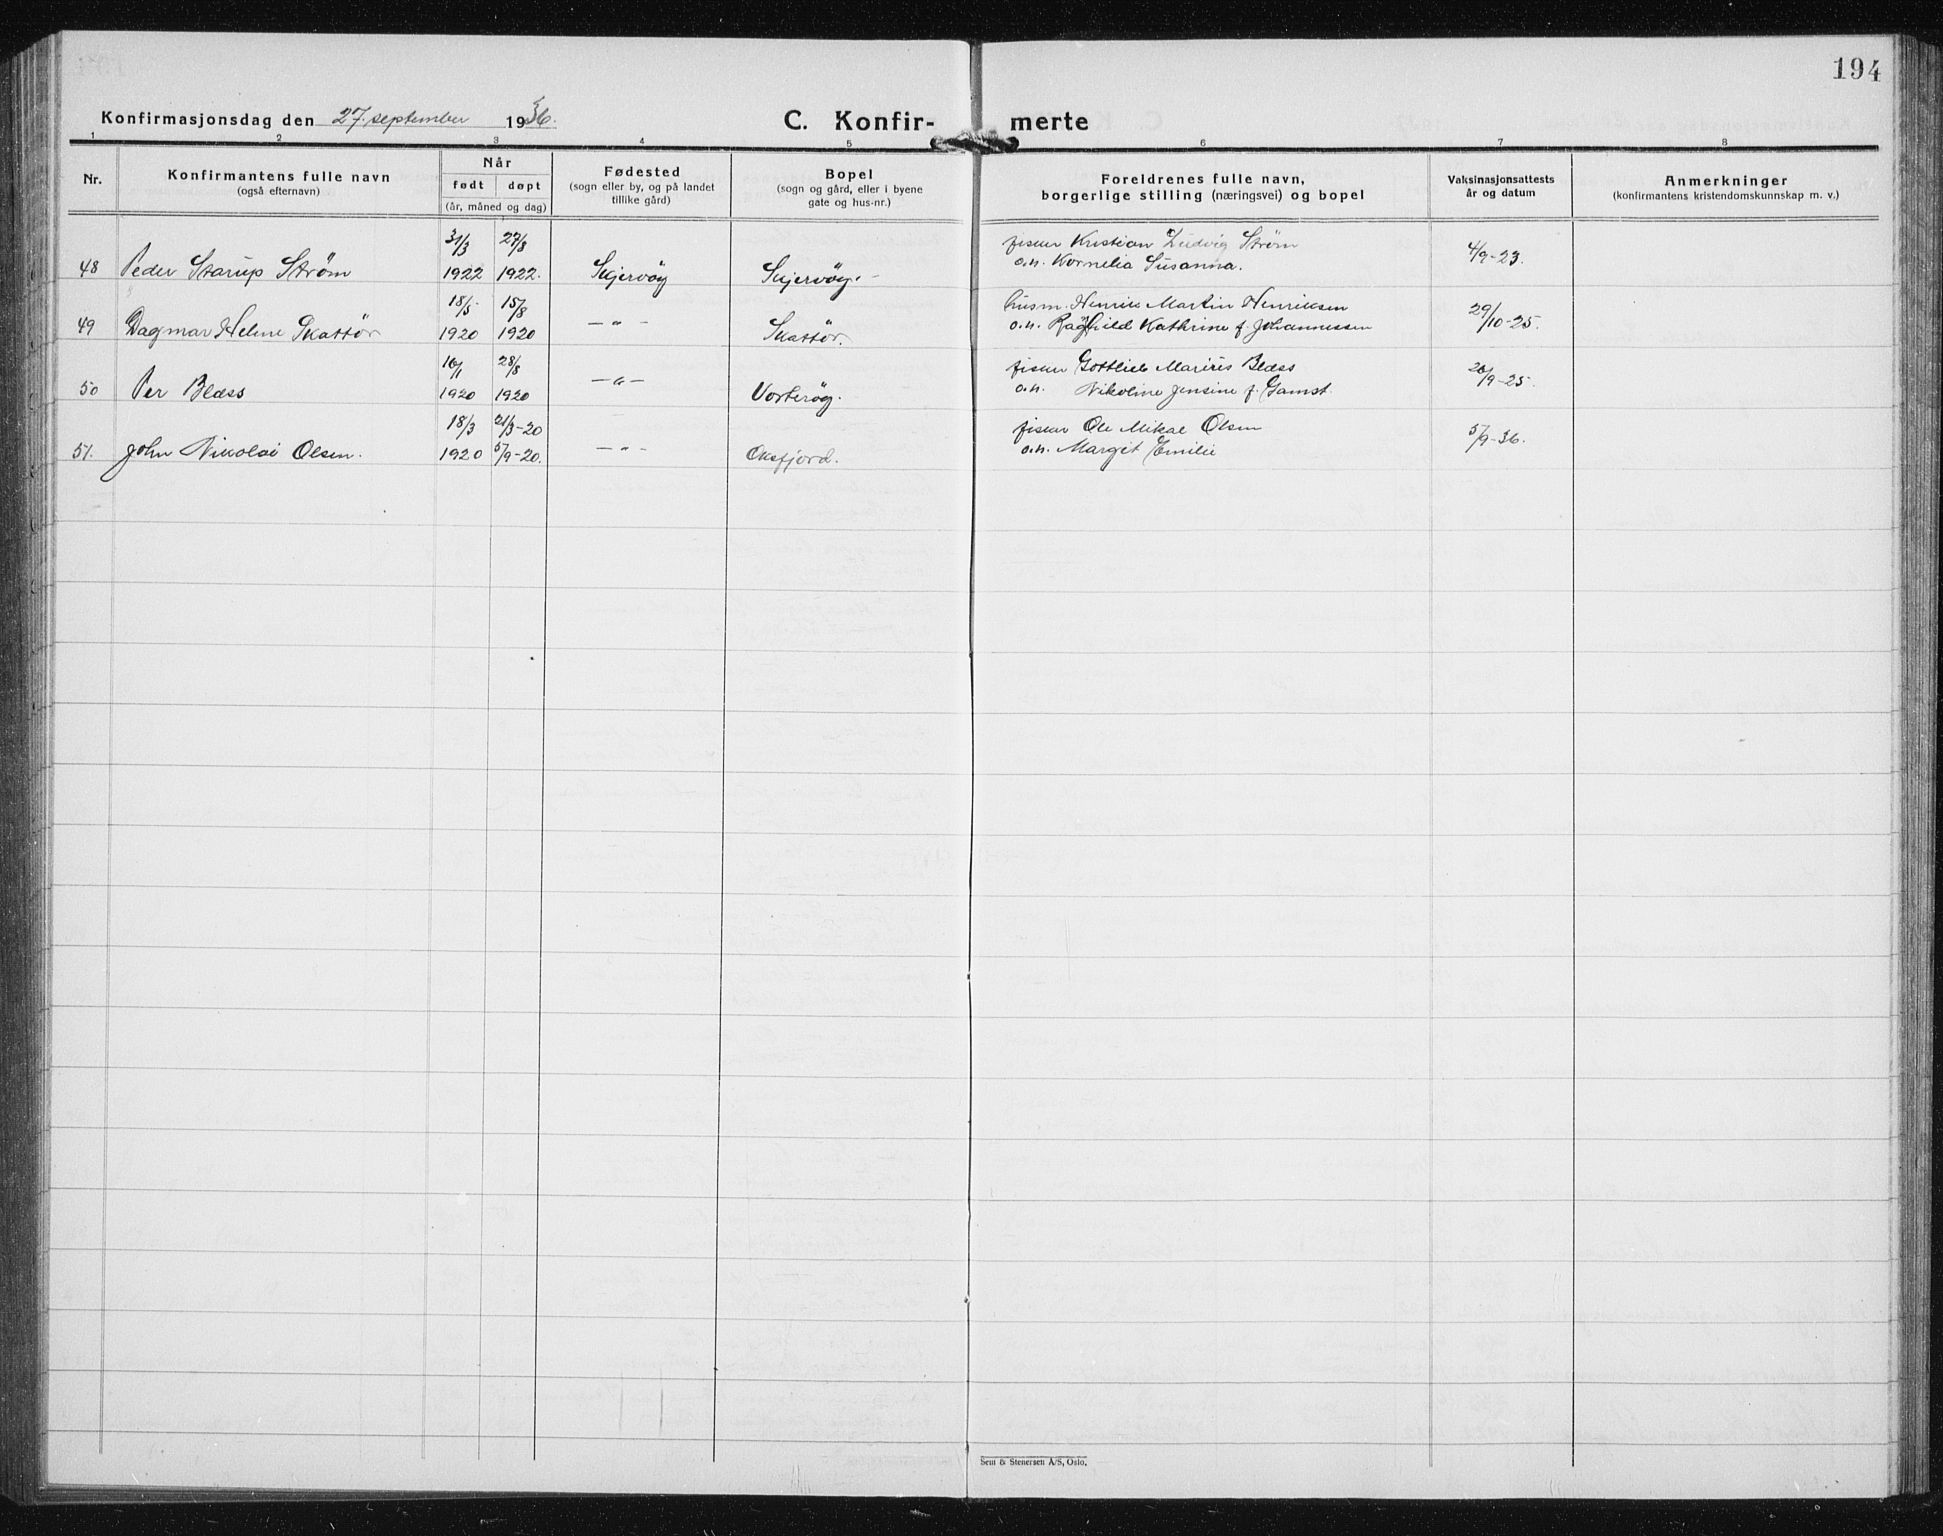 194
Konfirmasjonsdag den 27. september 1936.
C. Konfir- merte
1 2 3 4 5 6 7 8
Nr.
Konfirmantens fulle navn
(også efternavn)
Når
født døpt
(år, måned og dag)
Fødested
(sogn eller by, og på landet
tillike gård)
Bopel
(sogn og gård, eller i byene
gate og hus-nr.)
Foreldrenes fulle navn,
borgerlige stilling (næringsvei) og bopel
Vaksinasjonsattests
år og datum
Anmerkninger
(konfirmantens kristendomskunnskap m. v.)
31/3 27/8 fisker Kristian Ludvig Strøm 4/9-23.
48 Peder Starup Strøm 1922 1922. Skjervøy Skjervøy. o.h. Kornelia Susanna.
18/5 15/8 husm. Henrik Martin Henriksen 29/10-25.
49 Dagmar Helene Skattör 1920 1920 —„— Skattör. o.h. Raghild Kathrine f. Johannessen
16/1 28/8 fisker Gottlieb Marius Blæss 26/9-25.
50 Per Blæss 1920 1920 —„— Vorterøy. o.h. Nikoline Jensine f. Gamst.
18/3 21/3-20 fisker Ole Mikal Olsen 5/9-36.
51. John Nikolai Olsen. 1920 5/9-20. —„— Oksfjord. o.h. Margit Emilie
Sem & Stenersen A/S, Oslo.